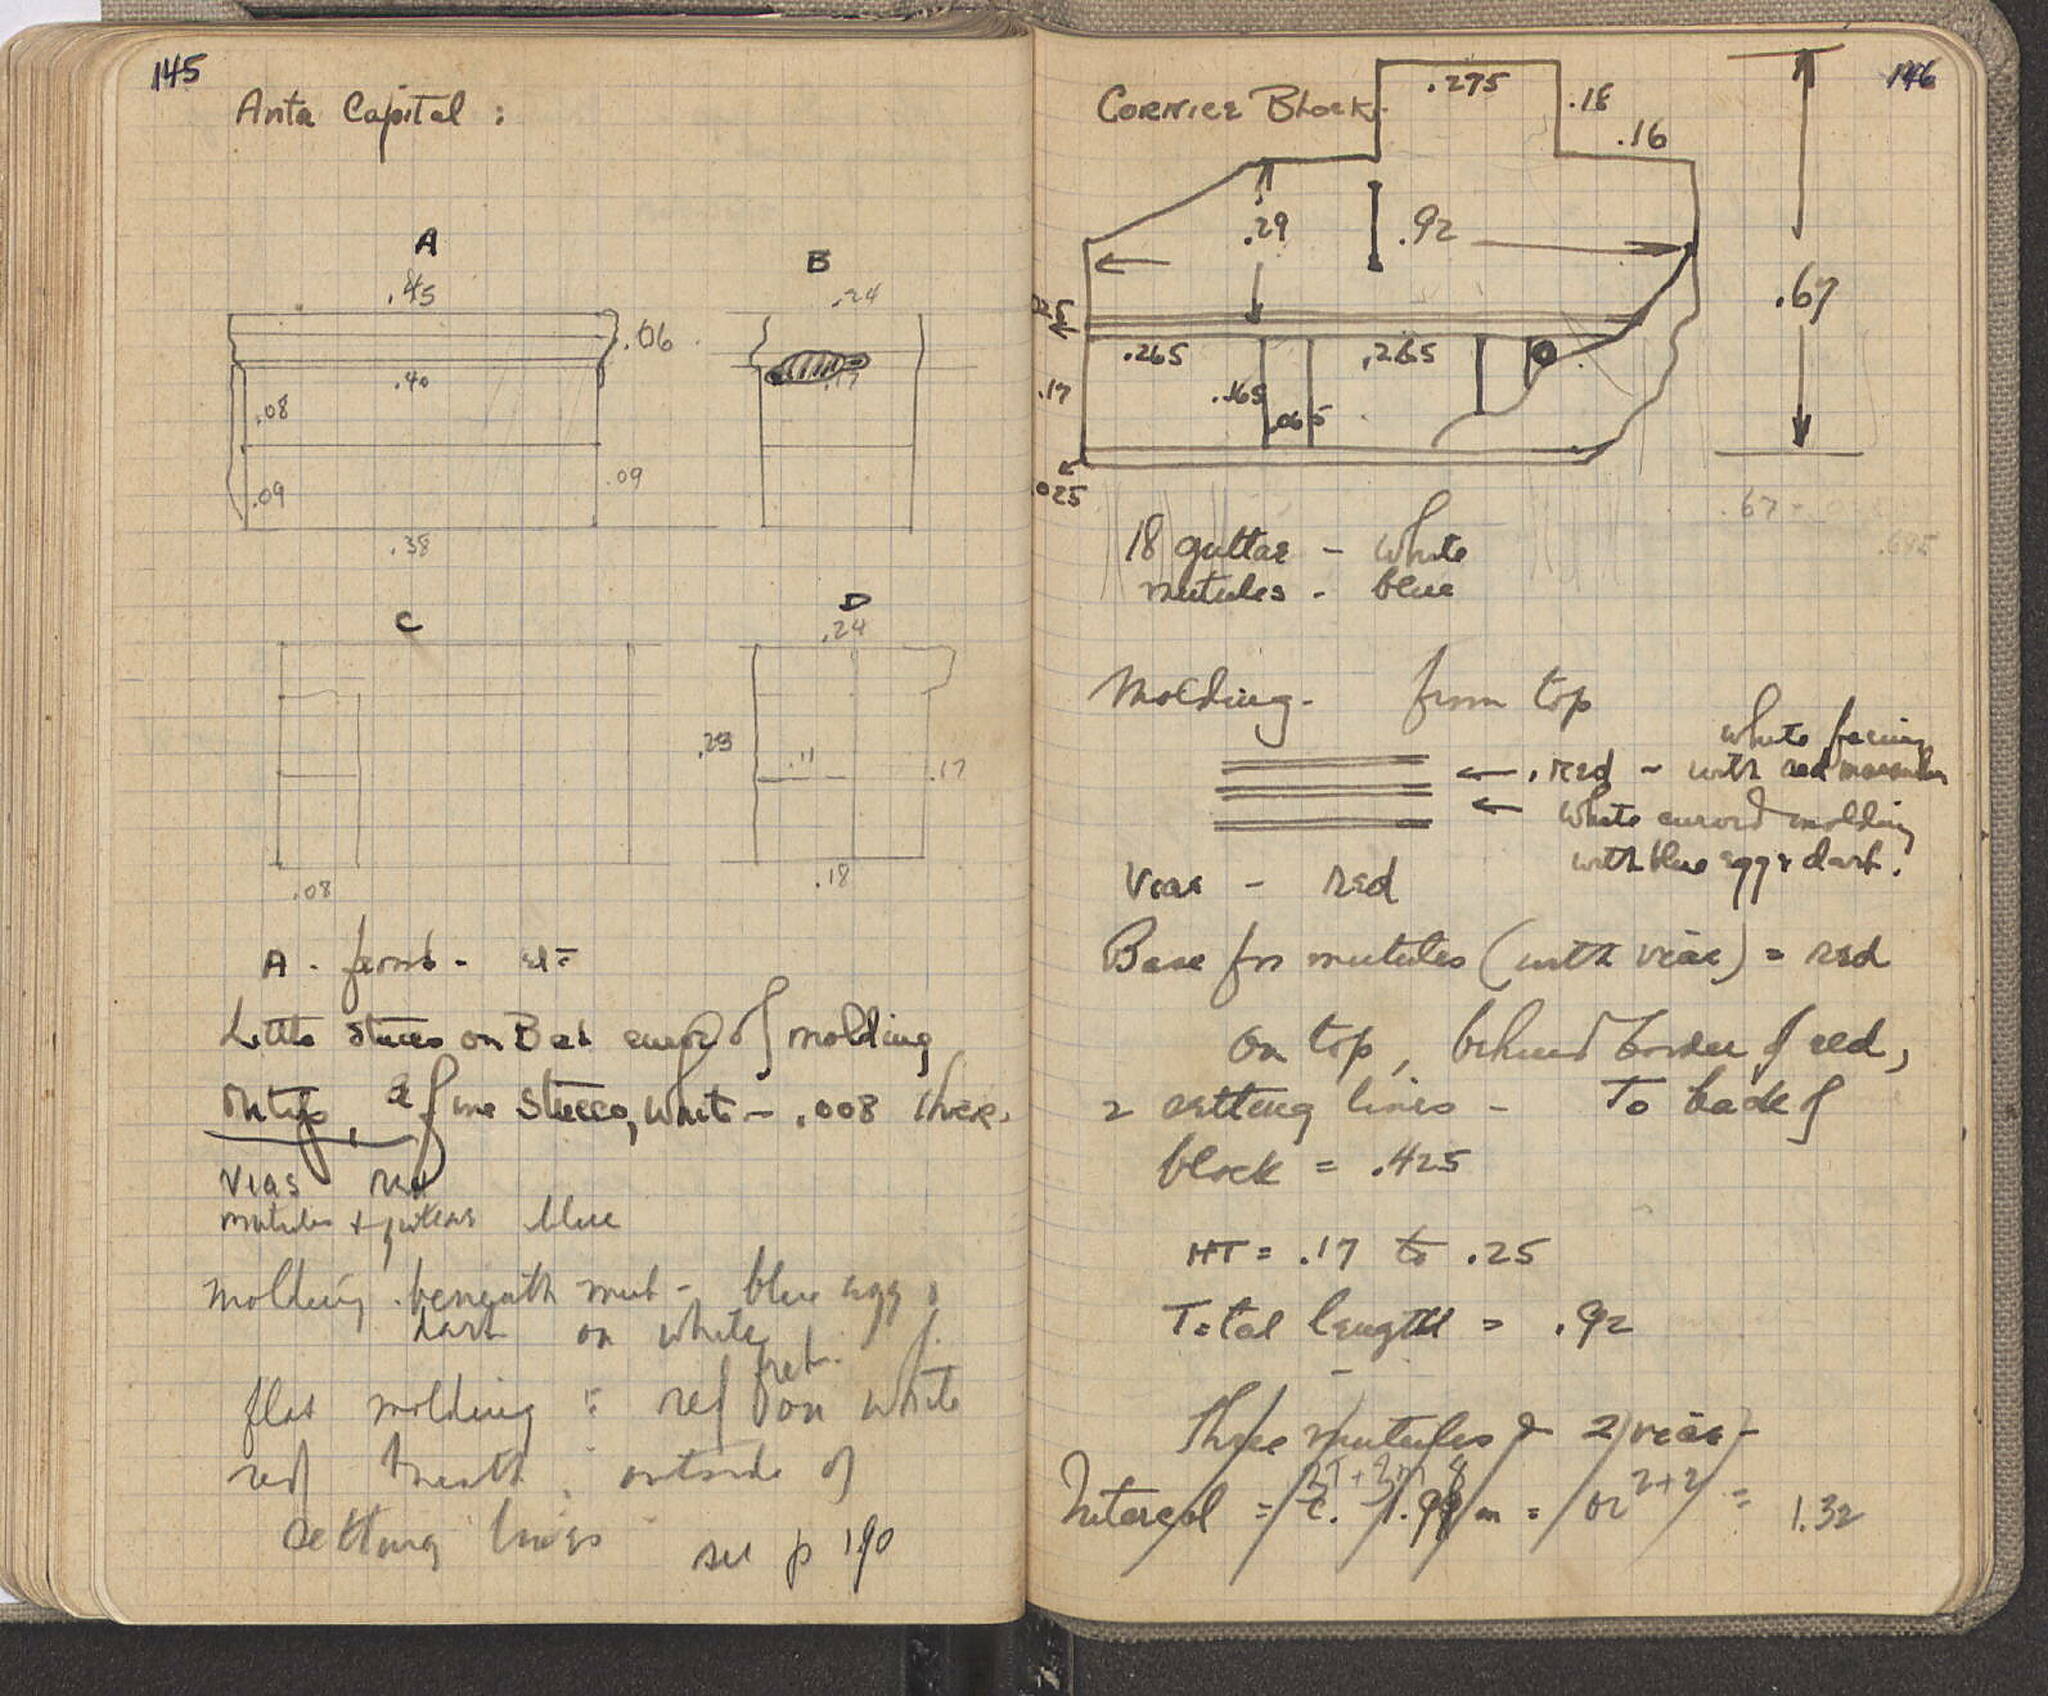 145
Anta Capital :
A
.45
B
.24
.06
.40
.17
.08
.09
.09
.38
C
D
.24
.23
.11
.17
.08
.18
A - front -
Little stucco on B curve of molding
on top, fine stucco, white - .008 thick.
Vias red
mutules + guttae blue
Molding beneath mut - blue egg &
dart on white
flat molding : red fret on white
red beneath outside of
setting lines see p 190
146
Cornice Block.
.275
.18
.16
.29
.92
.67
.025
.265
.265
.17
.165
.065
.025
.67
18 guttae - white
mutules - blue
Molding - from top
white facing
red - with red meander
white curved molding
with blue egg & dart.
Viae - red
Base for mutules (with viae) = red
On top, behind border of red,
2 setting lines - To back of
block = .425
HT = .17 to .25
Total length = .92
Three mutules & 2 viae -
2+2
Interval = c. m = or = 1.32